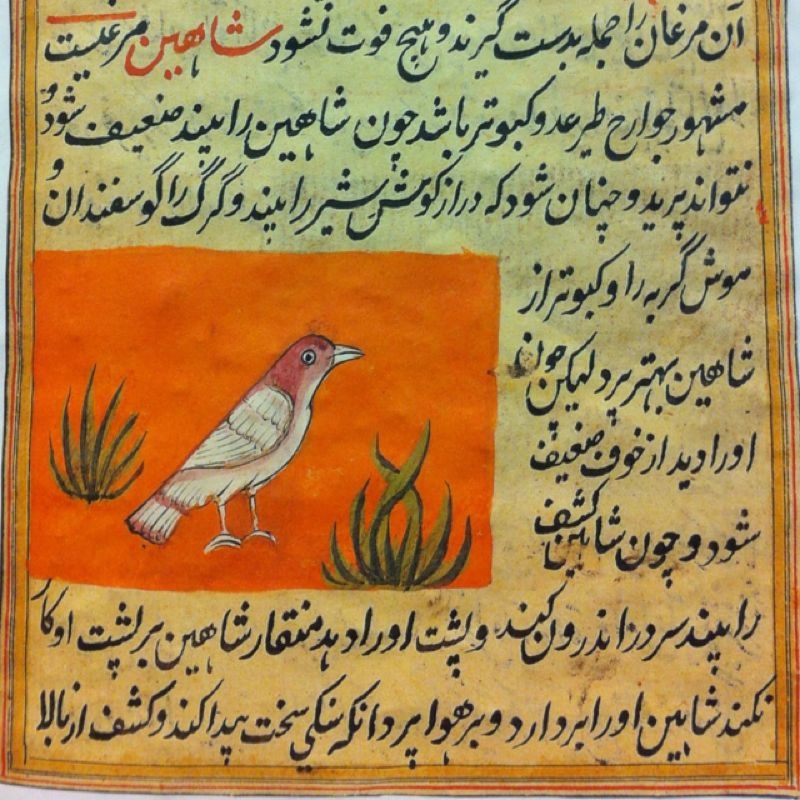 آن مرغان را جمله بدست گیرند و هیچ فوت نشود شاهین مرغیست
مشهور جوارح طیر عدو کبوتر باشد چون شاهین را بیند ضعیف شود و
نتواند پرید و چنان شود که درازگوش شیر را بیند و گرگ را گوسفندان و
موش گربه را و کبوتر از
شاهین بهتر پرد لیکن چون
او را دید از خوف ضعیف
شود و چون شاهین کشف
را بیند سر در اندرون کند و پشت او را دهد منقار شاهین بر پشت او کار
نکند شاهین او را بردارد و بر هوا پرد انکه سنکی سخت پیدا کند و کشف از بالا